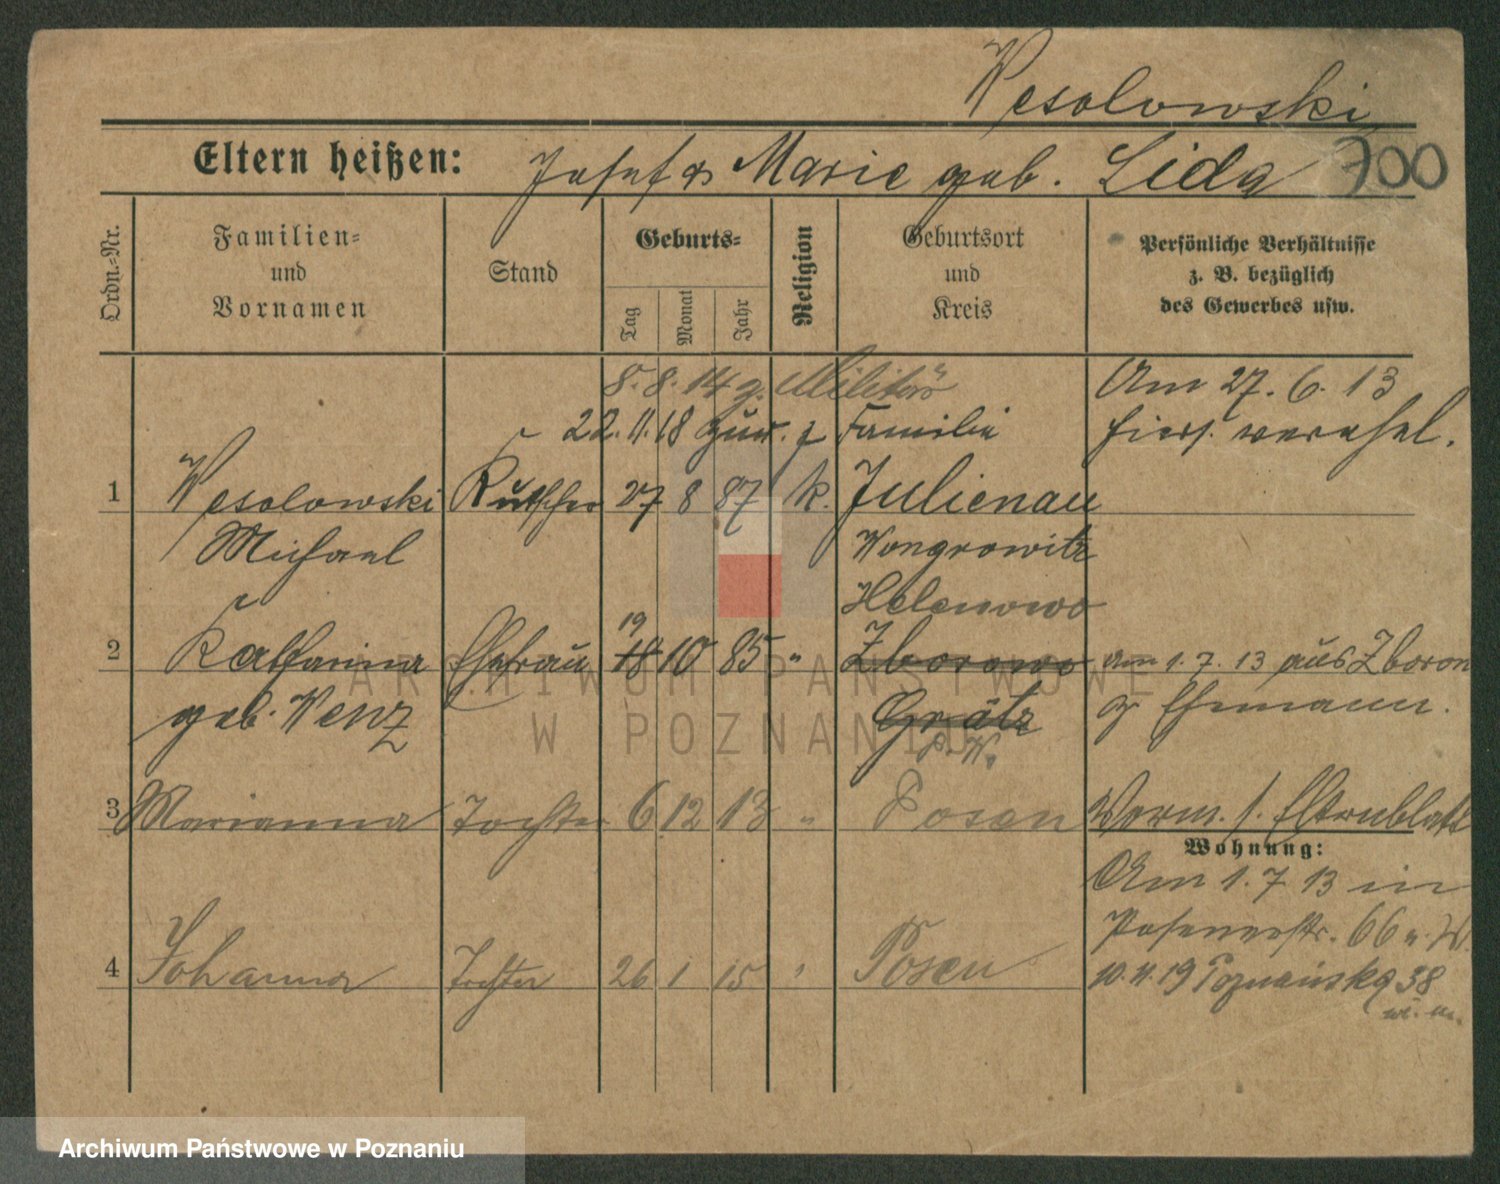 Wesolowski
Eltern heißen: Josef & Marie geb. Lida 700
Ordn.-Nr.
Familien-
und
Vornamen
Stand
Geburts-
Tag
Monat
Jahr
Religion
Geburtsort
und
Kreis
Persönliche Verhältnisse
z. B. bezüglich
des Gewerbes usw.
8. 8. 14 z. Militär
Am 27. 6. 13
22. 11. 18 zur. z Familie
hiers. verehel.
1 Wesolowski Kutscher 27 8 87 k. Julienau
Michael
Wongrowitz
Helenowo
19
2 Katharina Ehefrau 18 10 85 " Zborowo am 1. 7. 13 aus Zboron
geb. Wenz
Grätz
z. Ehemann.
P. W.
3 Marianna Tochter 6 12 13 " Posen Verm. s. Elternblatt
Wohnung:
Am 1. 7 13 in
Posenerstr. 66
4 Johanna Tochter 26 1 15 " Posen
10. 4. 19 Poznańska 38
ARCHIWUM PAŃSTWOWE
W POZNANIU
Archiwum Państwowe w Poznaniu